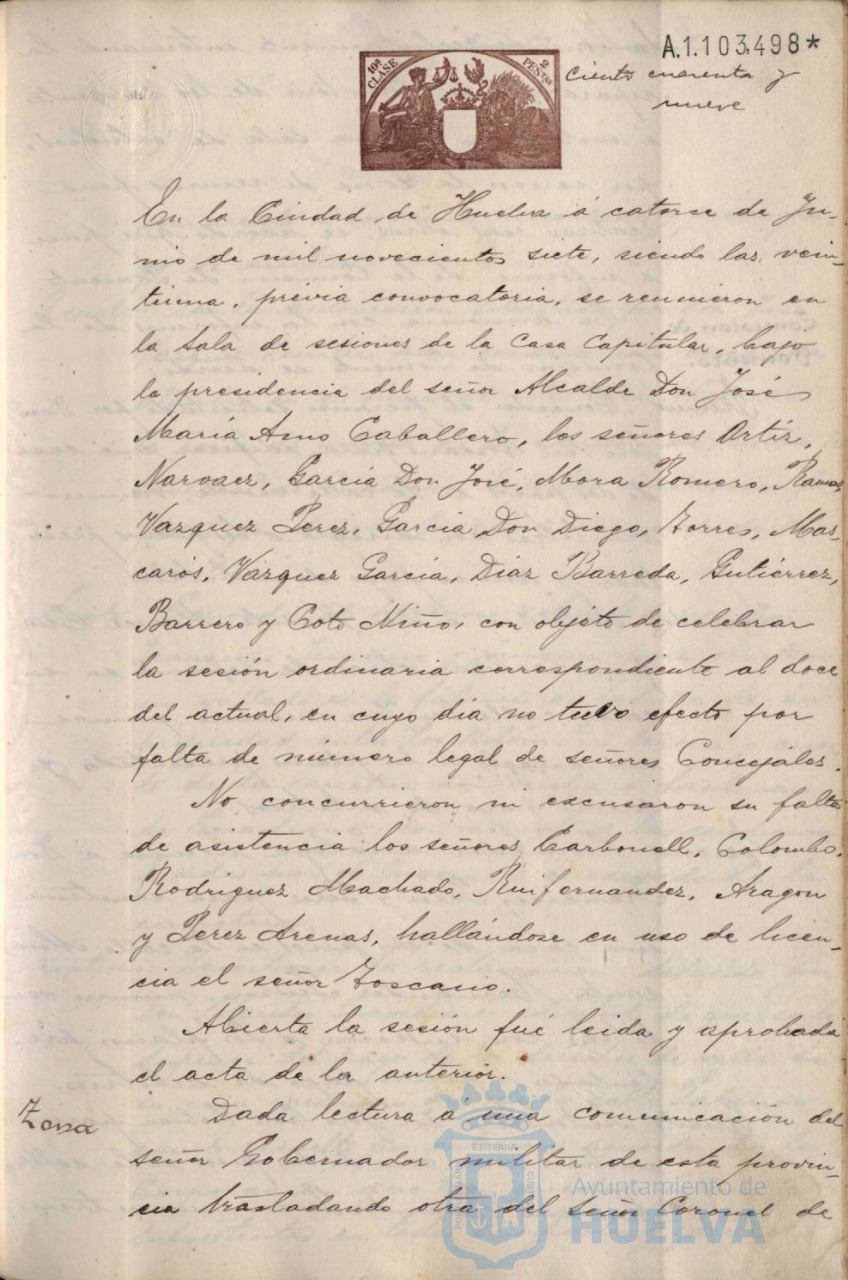 A.1.103.498*
10ª CLASE
2 PESETAS
ciento cuarenta y
nueve
En la Ciudad de Huelva á catorce de Ju-
nio de mil novecientos siete, siendo las vein-
tiuna, prévia convocatoria, se reunieron en
la Sala de sesiones de la Casa Capitular, bajo
la presidencia del señor Alcalde Don José
María Amo Caballero, los señores Ortíz,
Narvaez, García Don José, Mora Romero, Ramos,
Vazquez Perez, García Don Diego, Torres, Mas-
carós, Vazquez García, Díaz Barreda, Gutiérrez,
Barrero y Coto Niño, con objéto de celebrar
la sesión ordinaria correspondiente al doce
del actual, en cuyo día no tuvo efecto por
falta de número legal de señores Concejáles.
No concurrieron ni excusaron su falta
de asistencia los señores Carbonell, Colombo,
Rodriguez Machado, Ruifernandez, Aragon
y Perez Arenas, hallándose en uso de licen-
cia el señor Toscano.
Abierta la sesión fué leida y aprobada
el acta de la anterior.
Zona
Dada lectura á una comunicación del
señor Gobernador militar de esta provin-
cia trasladando otra del Señor Coronel de
ET TERRÆ
Ayuntamiento de
HUELVA